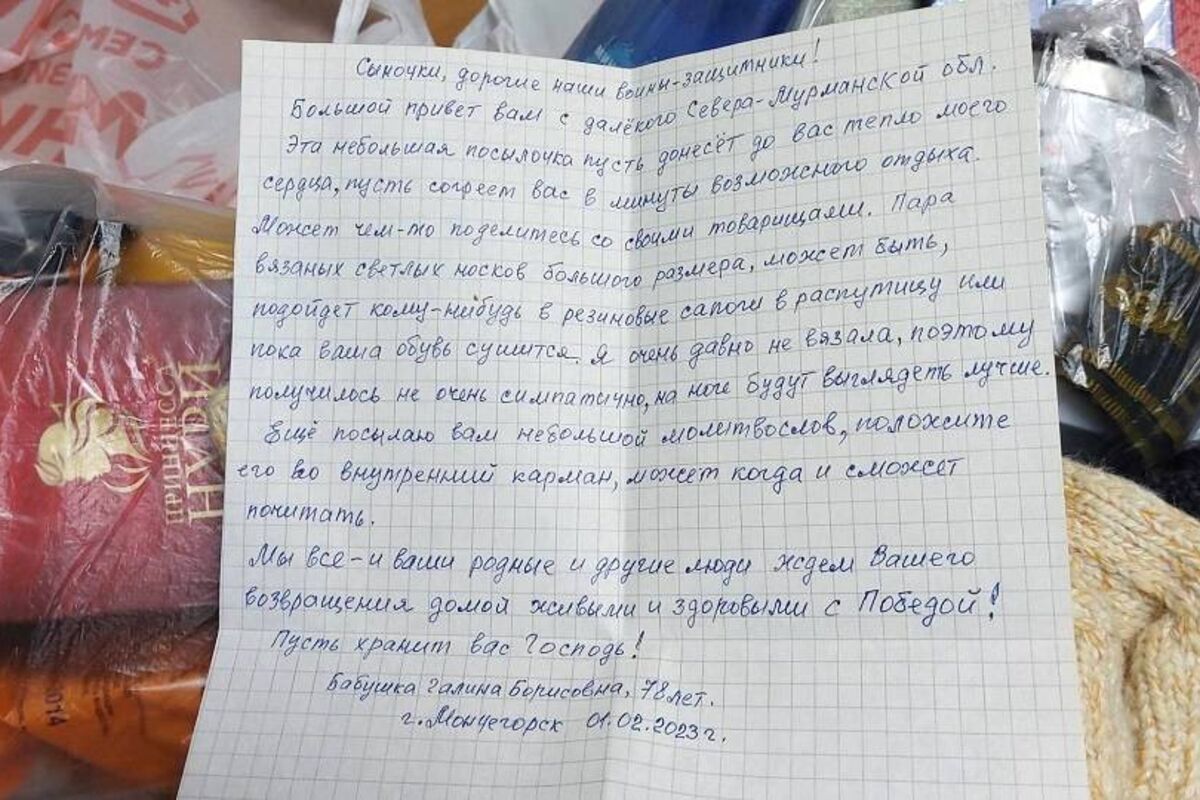 Сыночки, дорогие наши воины-защитники!
Большой привет вам с далёкого Севера-Мурманской обл.
Эта небольшая посылочка пусть донесёт до вас тепло моего
сердца, пусть согреет вас в минуты возможного отдыха.
Может чем-то поделитесь со своими товарищами. Пара
вязаных светлых носков большого размера, может быть,
подойдет кому-нибудь в резиновые сапоги в распутицу или
пока ваша обувь сушится. Я очень давно не вязала, поэтому
получилось не очень симпатично, на ноге будут выглядеть лучше.
Ещё посылаю вам небольшой молитвослов, положите
его во внутренний карман, может когда и сможет
почитать.
Мы все - и ваши родные и другие люди ждем Вашего
возвращения домой живыми и здоровыми с Победой!
Пусть хранит вас Господь!
Бабушка Галина Борисовна, 78 лет.
г. Мончегорск 01.02.2023 г.
ПРИНЦЕССА
НУРИ